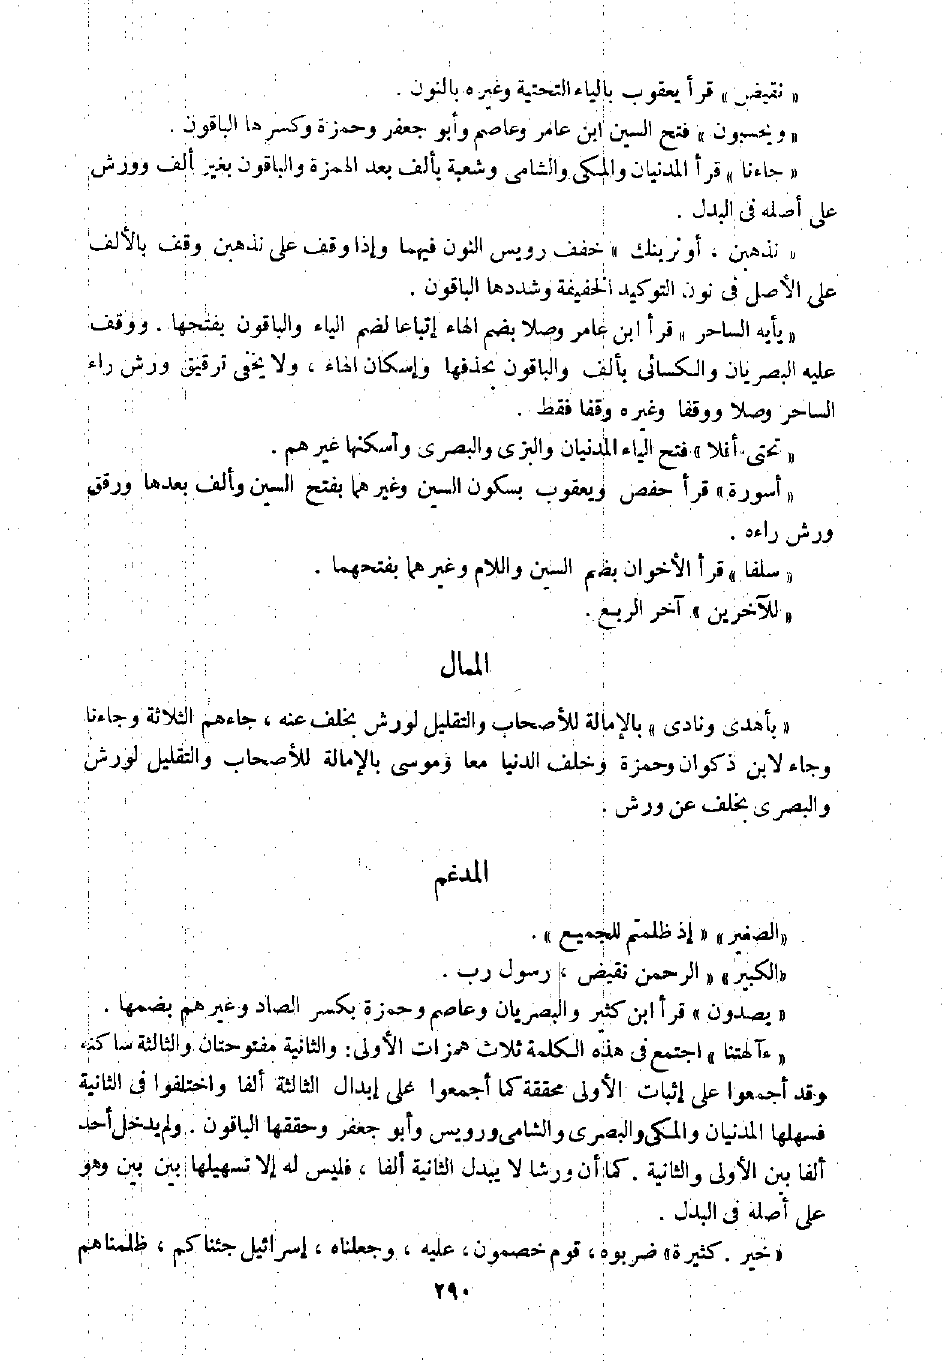 « نقيض » قرأ يعقوب بالياء التحتية وغيره بالنون .
« ويحسبون » فتح السين ابن عامر وعاصم وأبو جعفر وحمزة وكسرها الباقون .
« جاءنا » قرأ المدنيان والمكى والشامى وشعبة بألف بعد الهمزة والباقون بغير ألف وورش
على أصله فى البدل .
« نذهبن ، أو نرينك » خفف رويس النون فيهما وإذا وقف على نذهبن وقف بالألف
على الأصل فى نون التوكيد الخفيفة وشددها الباقون .
« يأيه الساحر » قرأ ابن عامر وصلا بضم الهاء إتباعا لضم الياء والباقون بفتحها . ووقف
عليه البصريان والكسائى بألف والباقون بحذفها وإسكان الهاء ، ولا يخفى ترقيق ورش راء
الساحر وصلا ووقفا وغيره وقفا فقط .
« تحتى أفلا » فتح الياء المدنيان والبزى والبصرى وأسكنها غيرهم .
« أسورة » قرأ حفص ويعقوب بسكون السين وغيرهما بفتح السين وألف بعدها ورقق
ورش راءه .
« سلفا » قرأ الأخوان بضم السين واللام وغيرهما بفتحهما .
« للآخرين » آخر الربع .
الممال
« بأهدى ونادى » بالإمالة للأصحاب والتقليل لورش بخلف عنه ، جاءهم الثلاثة وجاءنا
وجاء لابن ذكوان وحمزة وخلف الدنيا معا وموسى بالإمالة للأصحاب والتقليل لورش
والبصرى بخلف عن ورش .
المدغم
« الصغير » « إذ ظلمتم للجميع » .
« الكبير » « الرحمن نقيض ، رسول رب .
« يصدون » قرأ ابن كثير والبصريان وعاصم وحمزة بكسر الصاد وغيرهم بضمها .
« ءآلهتنا » اجتمع فى هذه الكلمة ثلاث همزات الأولى: والثانية مفتوحتان والثالثة ساكنة
وقد أجمعوا على إثبات الأولى محققة كما أجمعوا على إبدال الثالثة ألفا واختلفوا فى الثانية
فسهلها المدنيان والمكى والبصرى والشامى ورويس وأبو جعفر وحققها الباقون . ولم يدخل أحد
ألفا بين الأولى والثانية . كما أن ورشا لا يبدل الثانية ألفا ، فليس له إلا تسهيلها بين بين وهو
على أصله فى البدل .
« خير . كثيرة » ضربوه ، قوم خصمون ، عليه ، وجعلناه ، إسرائيل جئناكم ، ظلمناهم
٢٩٠